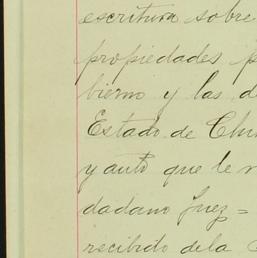 escritura sobre
propiedades p
bierno y las d
Estado de Chi
y auto que le
dadano Juez =
recibido dela